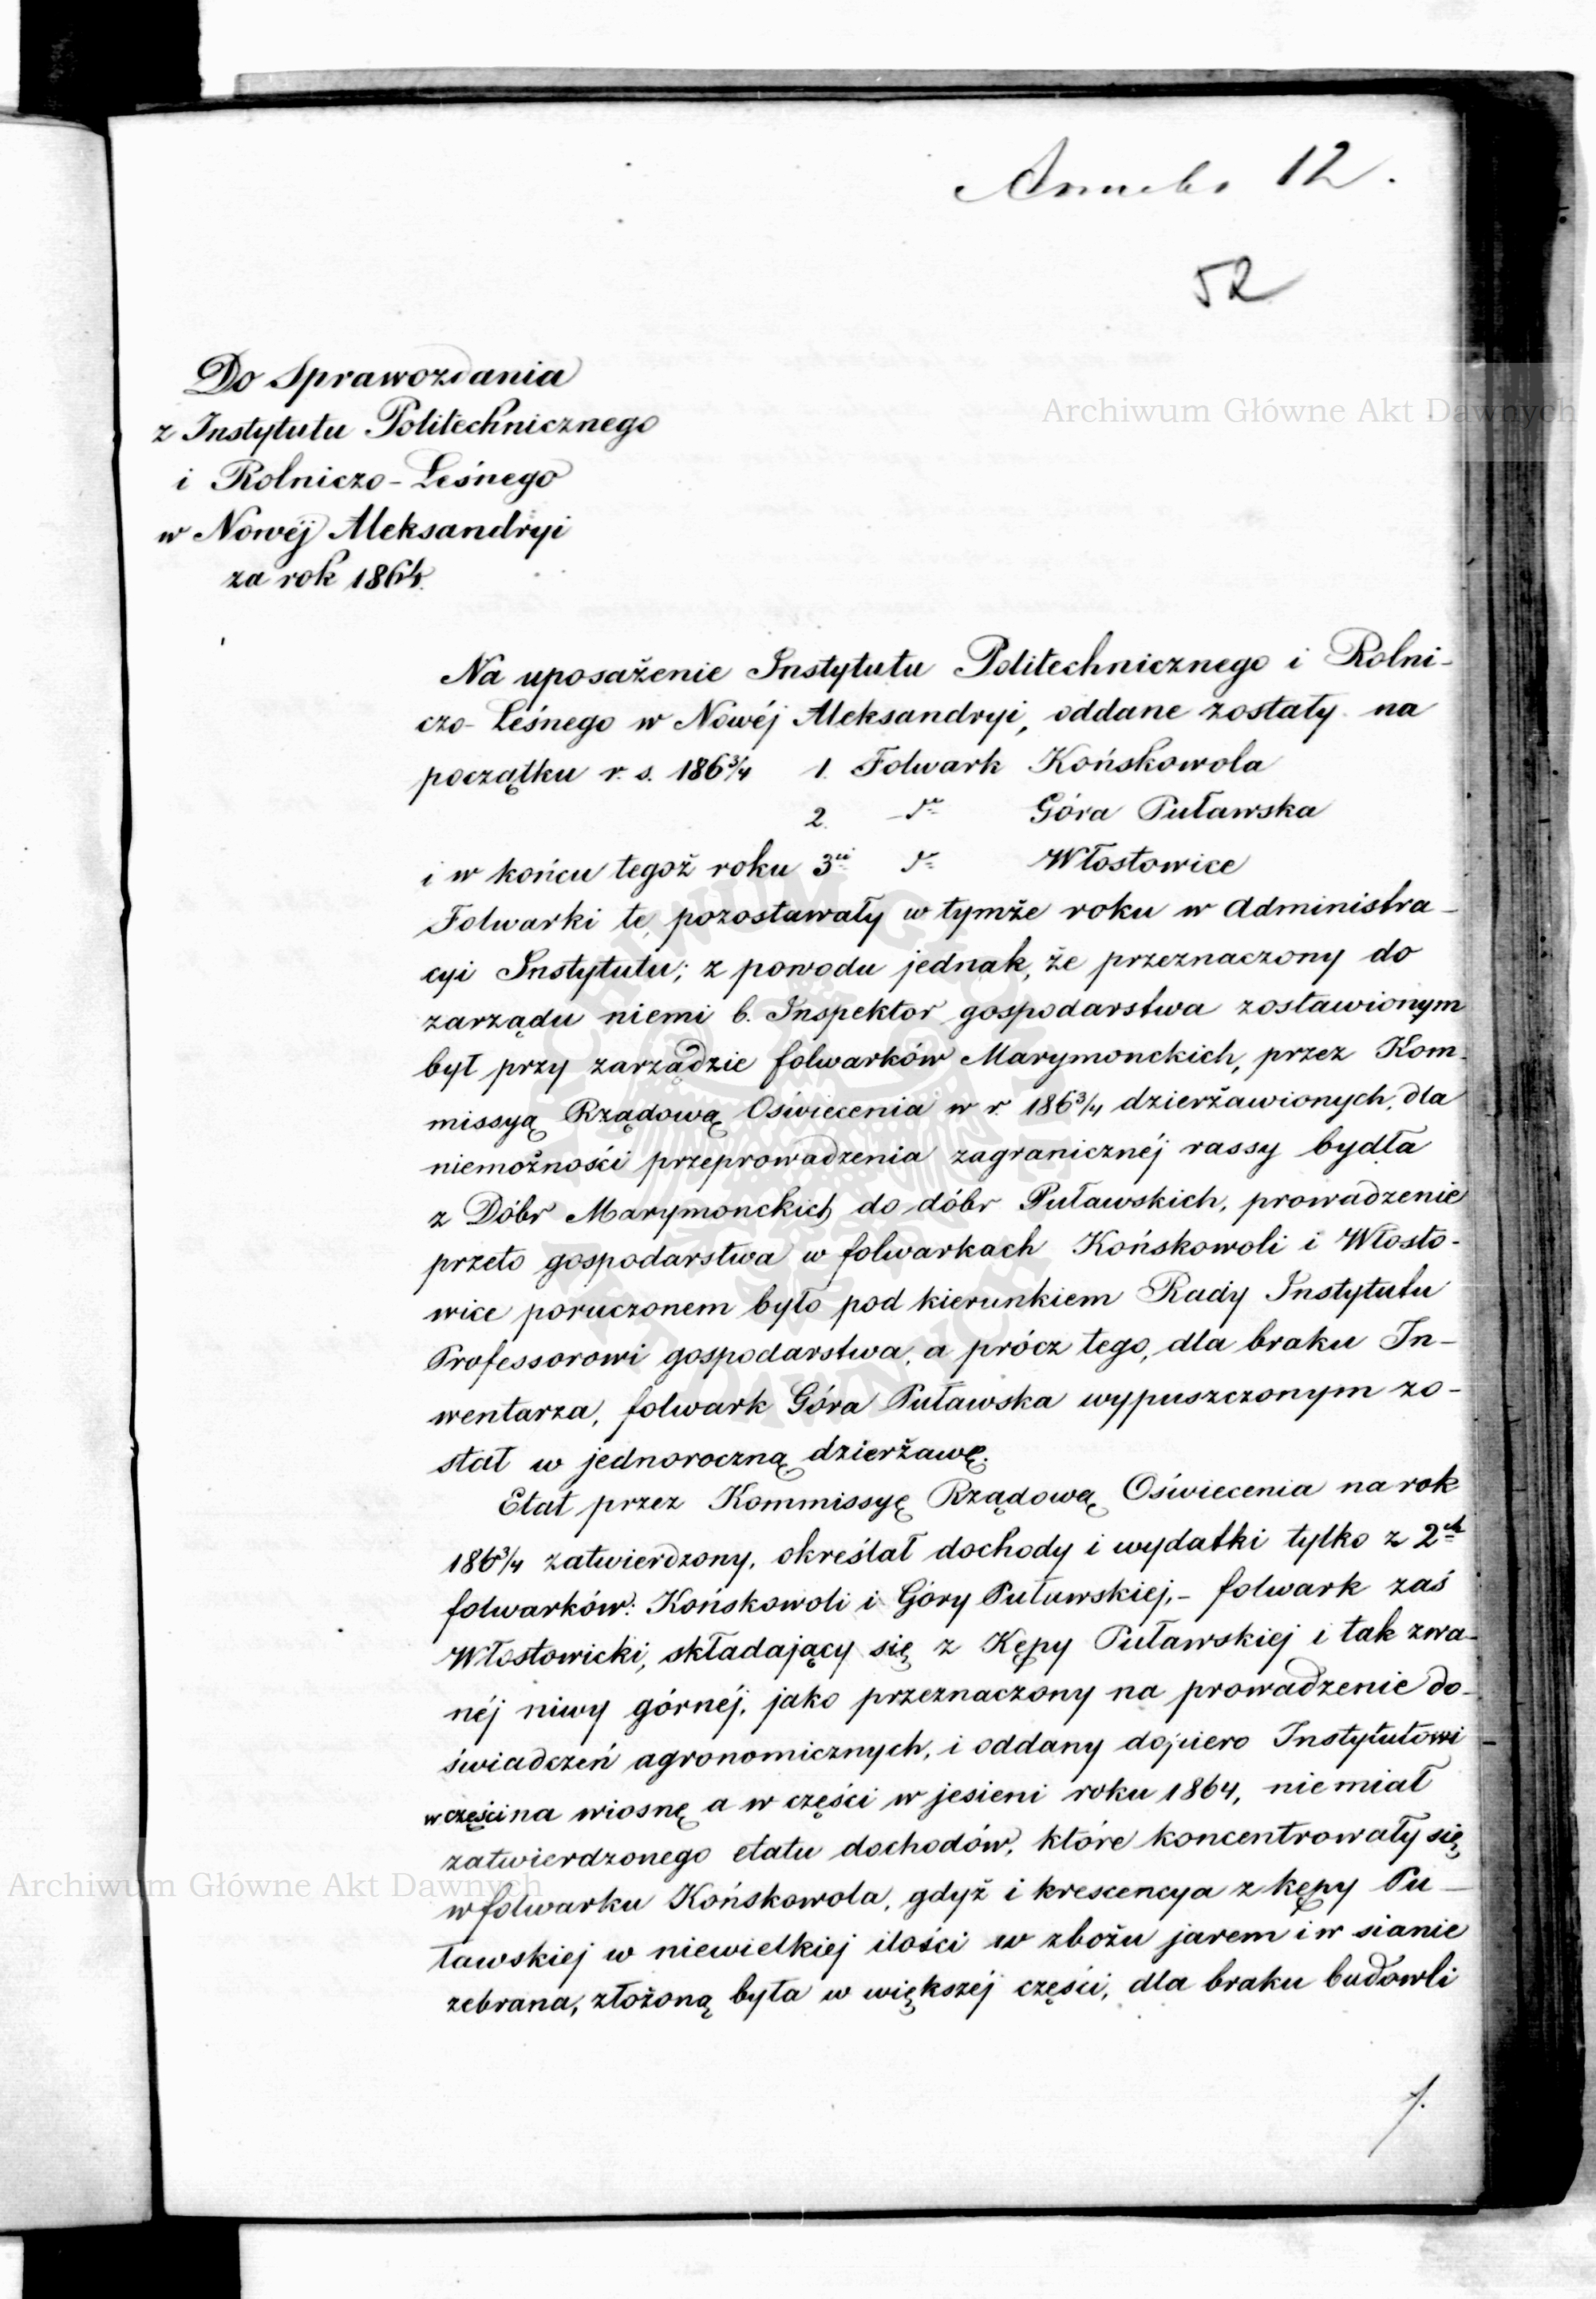 Annebs 12.
52
Do Sprawozdania
z Instytutu Politechnicznego
i Rolniczo-Leśnego
w Nowéj Aleksandryi
za rok 1864.
Archiwum Główne Akt Dawnych
Na uposażenie Instytutu Politechnicznego i Rolni-
czo-Leśnego w Nowéj Aleksandryi, oddane zostały na
początku r. s. 186¾ 1. Folwark Końskowola
2. do Góra Puławska
i w końcu tegoż roku 3ci do Włostowice
Folwarki te, pozostawały w tymże roku w Administra-
cyi Instytutu; z powodu jednak, że przeznaczony do
zarządu niemi b. Inspektor gospodarstwa zostawionym
był przy zarządzie folwarków Marymonckich, przez Kom-
missyą Rządową Oświecenia w r. 186¾ dzierżawionych, dla
niemożności przeprowadzenia zagranicznéj rassy bydła
z Dóbr Marymonckich do dóbr Puławskich, prowadzenie
przeto gospodarstwa w folwarkach Końskowoli i Włosto-
wice poruczonem było pod kierunkiem Rady Instytutu
Professorowi gospodarstwa, a prócz tego, dla braku In-
wentarza, folwark Góra Puławska wypuszczonym zo-
stał w jednoroczną dzierżawę.
Etat przez Kommissyę Rządową Oświecenia na rok
186¾ zatwierdzony, określał dochody i wydatki tylko z 2ch
folwarków: Końskowoli i Góry Puławskiej,- folwark zaś
Włostowicki, składający się z Kępy Puławskiej i tak zwa-
néj niwy górnéj, jako przeznaczony na prowadzenie do-
świadczeń agronomicznych, i oddany dopiero Instytutowi
w części na wiosnę a w części w jesieni roku 1864, nie miał
zatwierdzonego etatu dochodów, które koncentrowały się
w folwarku Końskowola, gdyż i krescencya z kępy Pu-
ławskiej w niewielkiej ilości w zbożu jarem i w sianie
zebrana, złożoną była w większéj części, dla braku budowli
Archiwum Główne Akt Dawnych